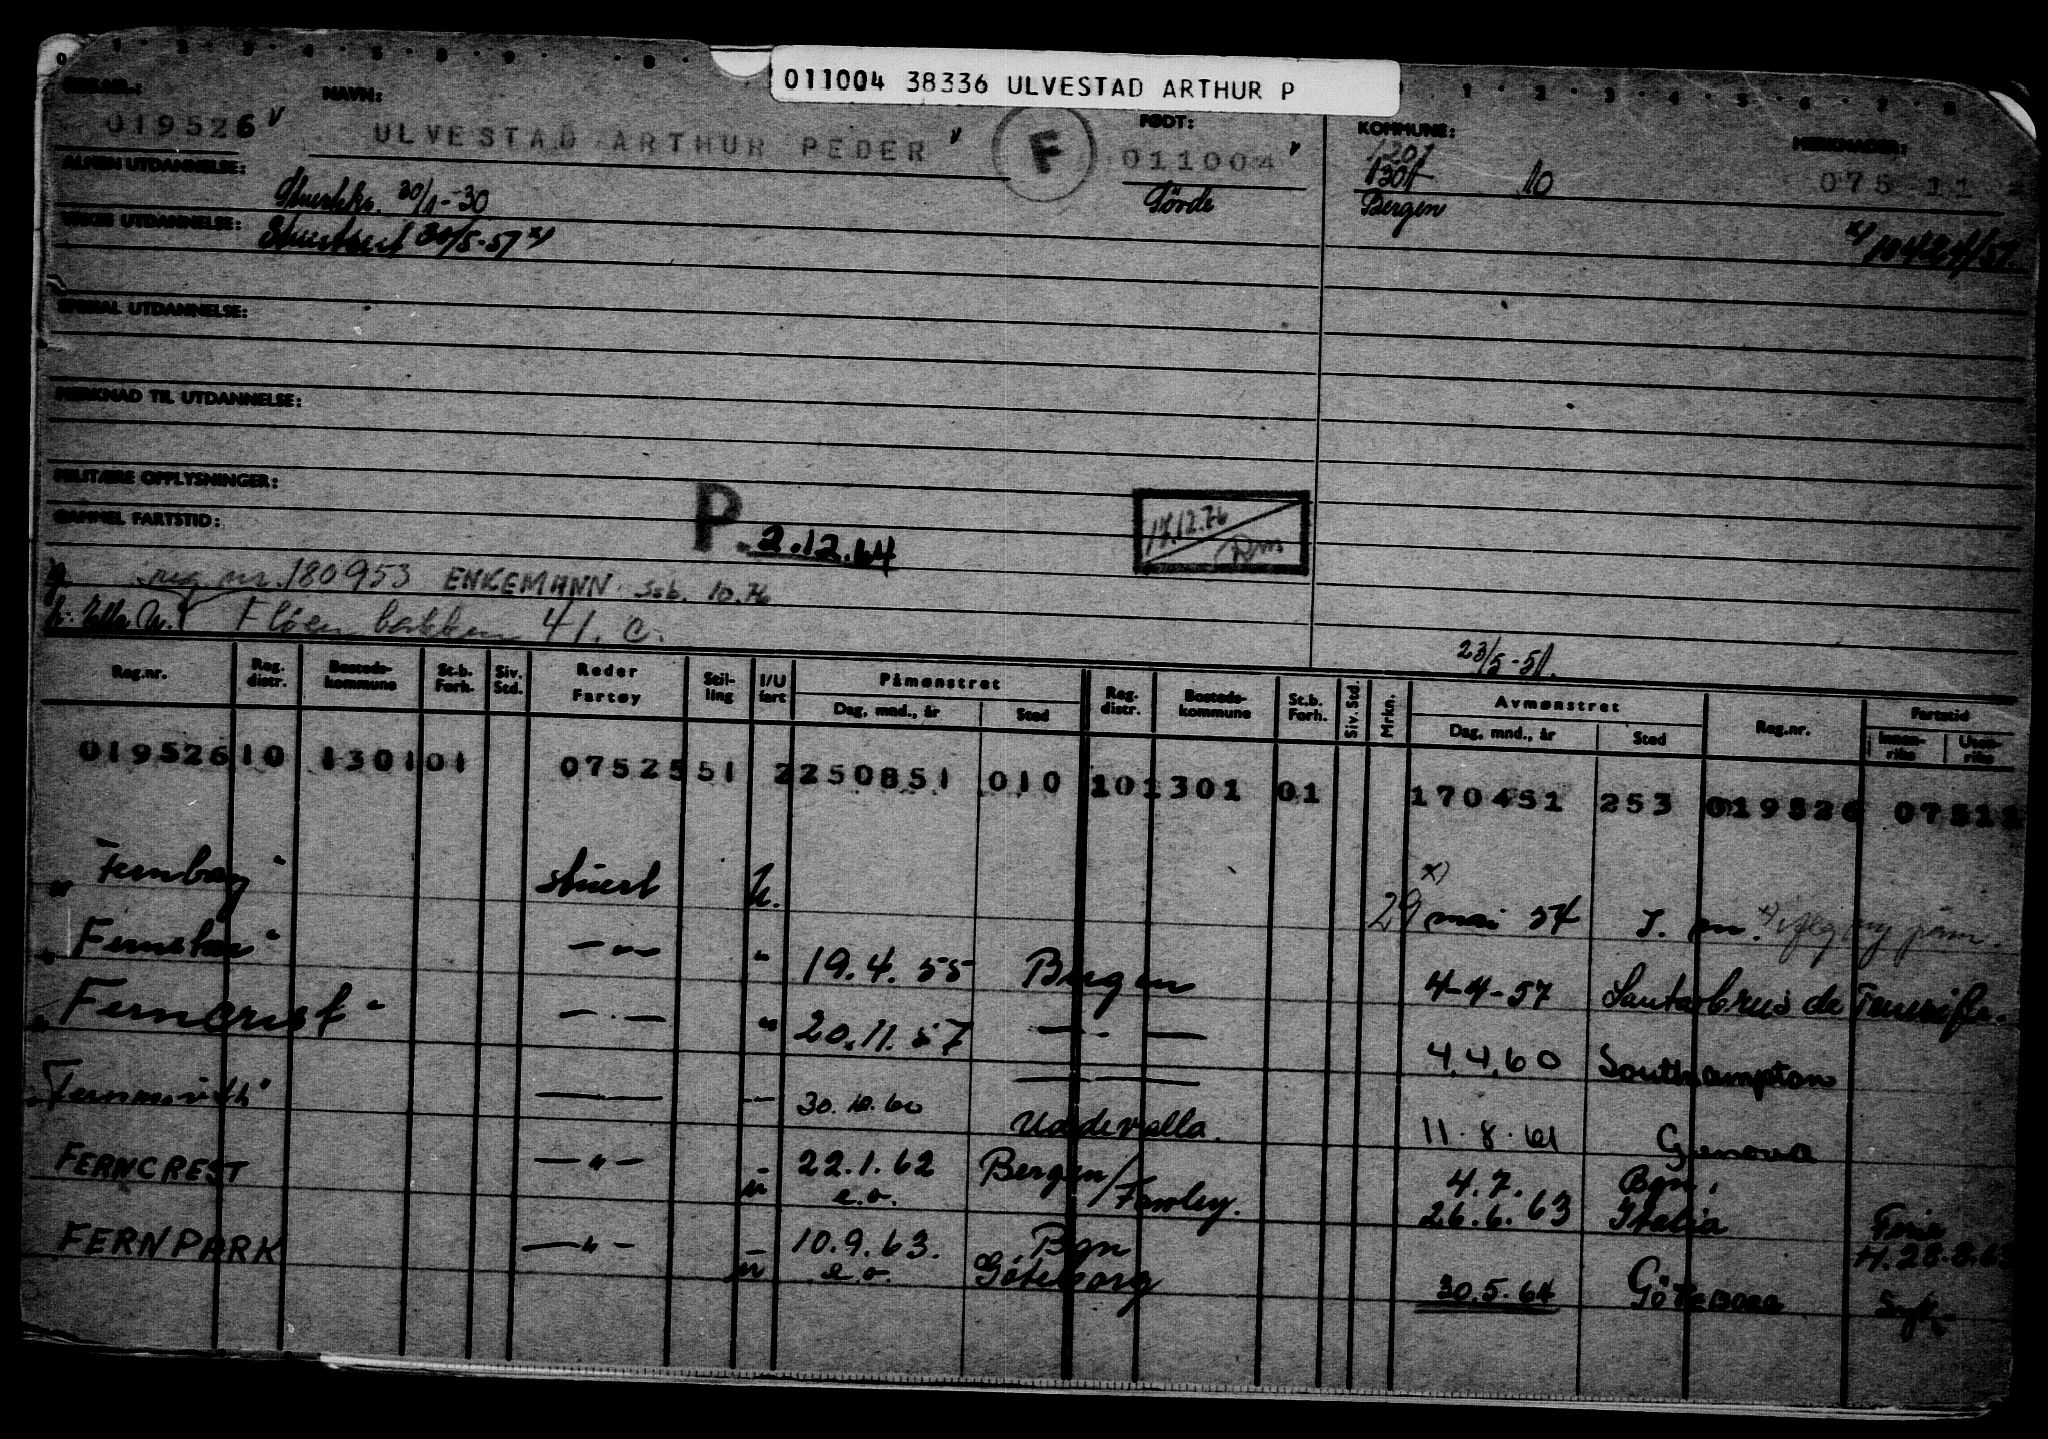 011004 38336 ULVESTAD ARTHUR P
NAVN: FØDT: KOMMUNE: MERKNADER:
019526 ULVESTAD ARTHUR PEDER F 011004 1201 1301 10 075 11
ALMEN UTDANNELSE: 30/1-30 Förde Bergen
YRKES UTDANNELSE: Stuertsert 30/5-57 x)
SPESIAL UTDANNELSE:
MERKNAD TIL UTDANNELSE:
MILITÆRE OPPLYSNINGER:
GAMMEL FARTSTID: P. 2.12.64 17.12.76
reg nr. 180953 ENKEMANN 10.76
Fløenbakken 41. c.
23/5-51.
Reg.nr. Reg. distr. Bosteds-kommune St.b. Forh. Siv. Std. Reder Fartøy Stil-ling I/U fart Påmønstret Dag, mnd., år Sted Reg. distr. Bosteds-kommune St.b. Forh. Siv. Std. Mrkn. Avmønstret Dag, mnd., år Sted Reg.nr. Fartstid Innen-riks Uten-riks
019526 10 1301 01 07525 51 2 250851 010 10 1301 01 170451 253 019526 07511
"Fernbay" stuert u. x) 29 mai 54 I.
"Fernstar" — " — " 19.4.55 Bergen 4-4-57 Santa Crus de Tenerife.
"Ferncrest" — . — " 20.11.57 — . — 4.4.60 Southampton
"Fernmonith" — — 30.10.60 Uddevalla. 11.8.61 Genova
FERNCREST — " — u 22.1.62 e.o. Bergen/Fawley. 4.7. 26.6.63 Bgn, Italia Ferie H. 28.8.63
FERNPARK — " — u 10.9.63. e.o. Bgn Göteborg 30.5.64 Göteborg Syk